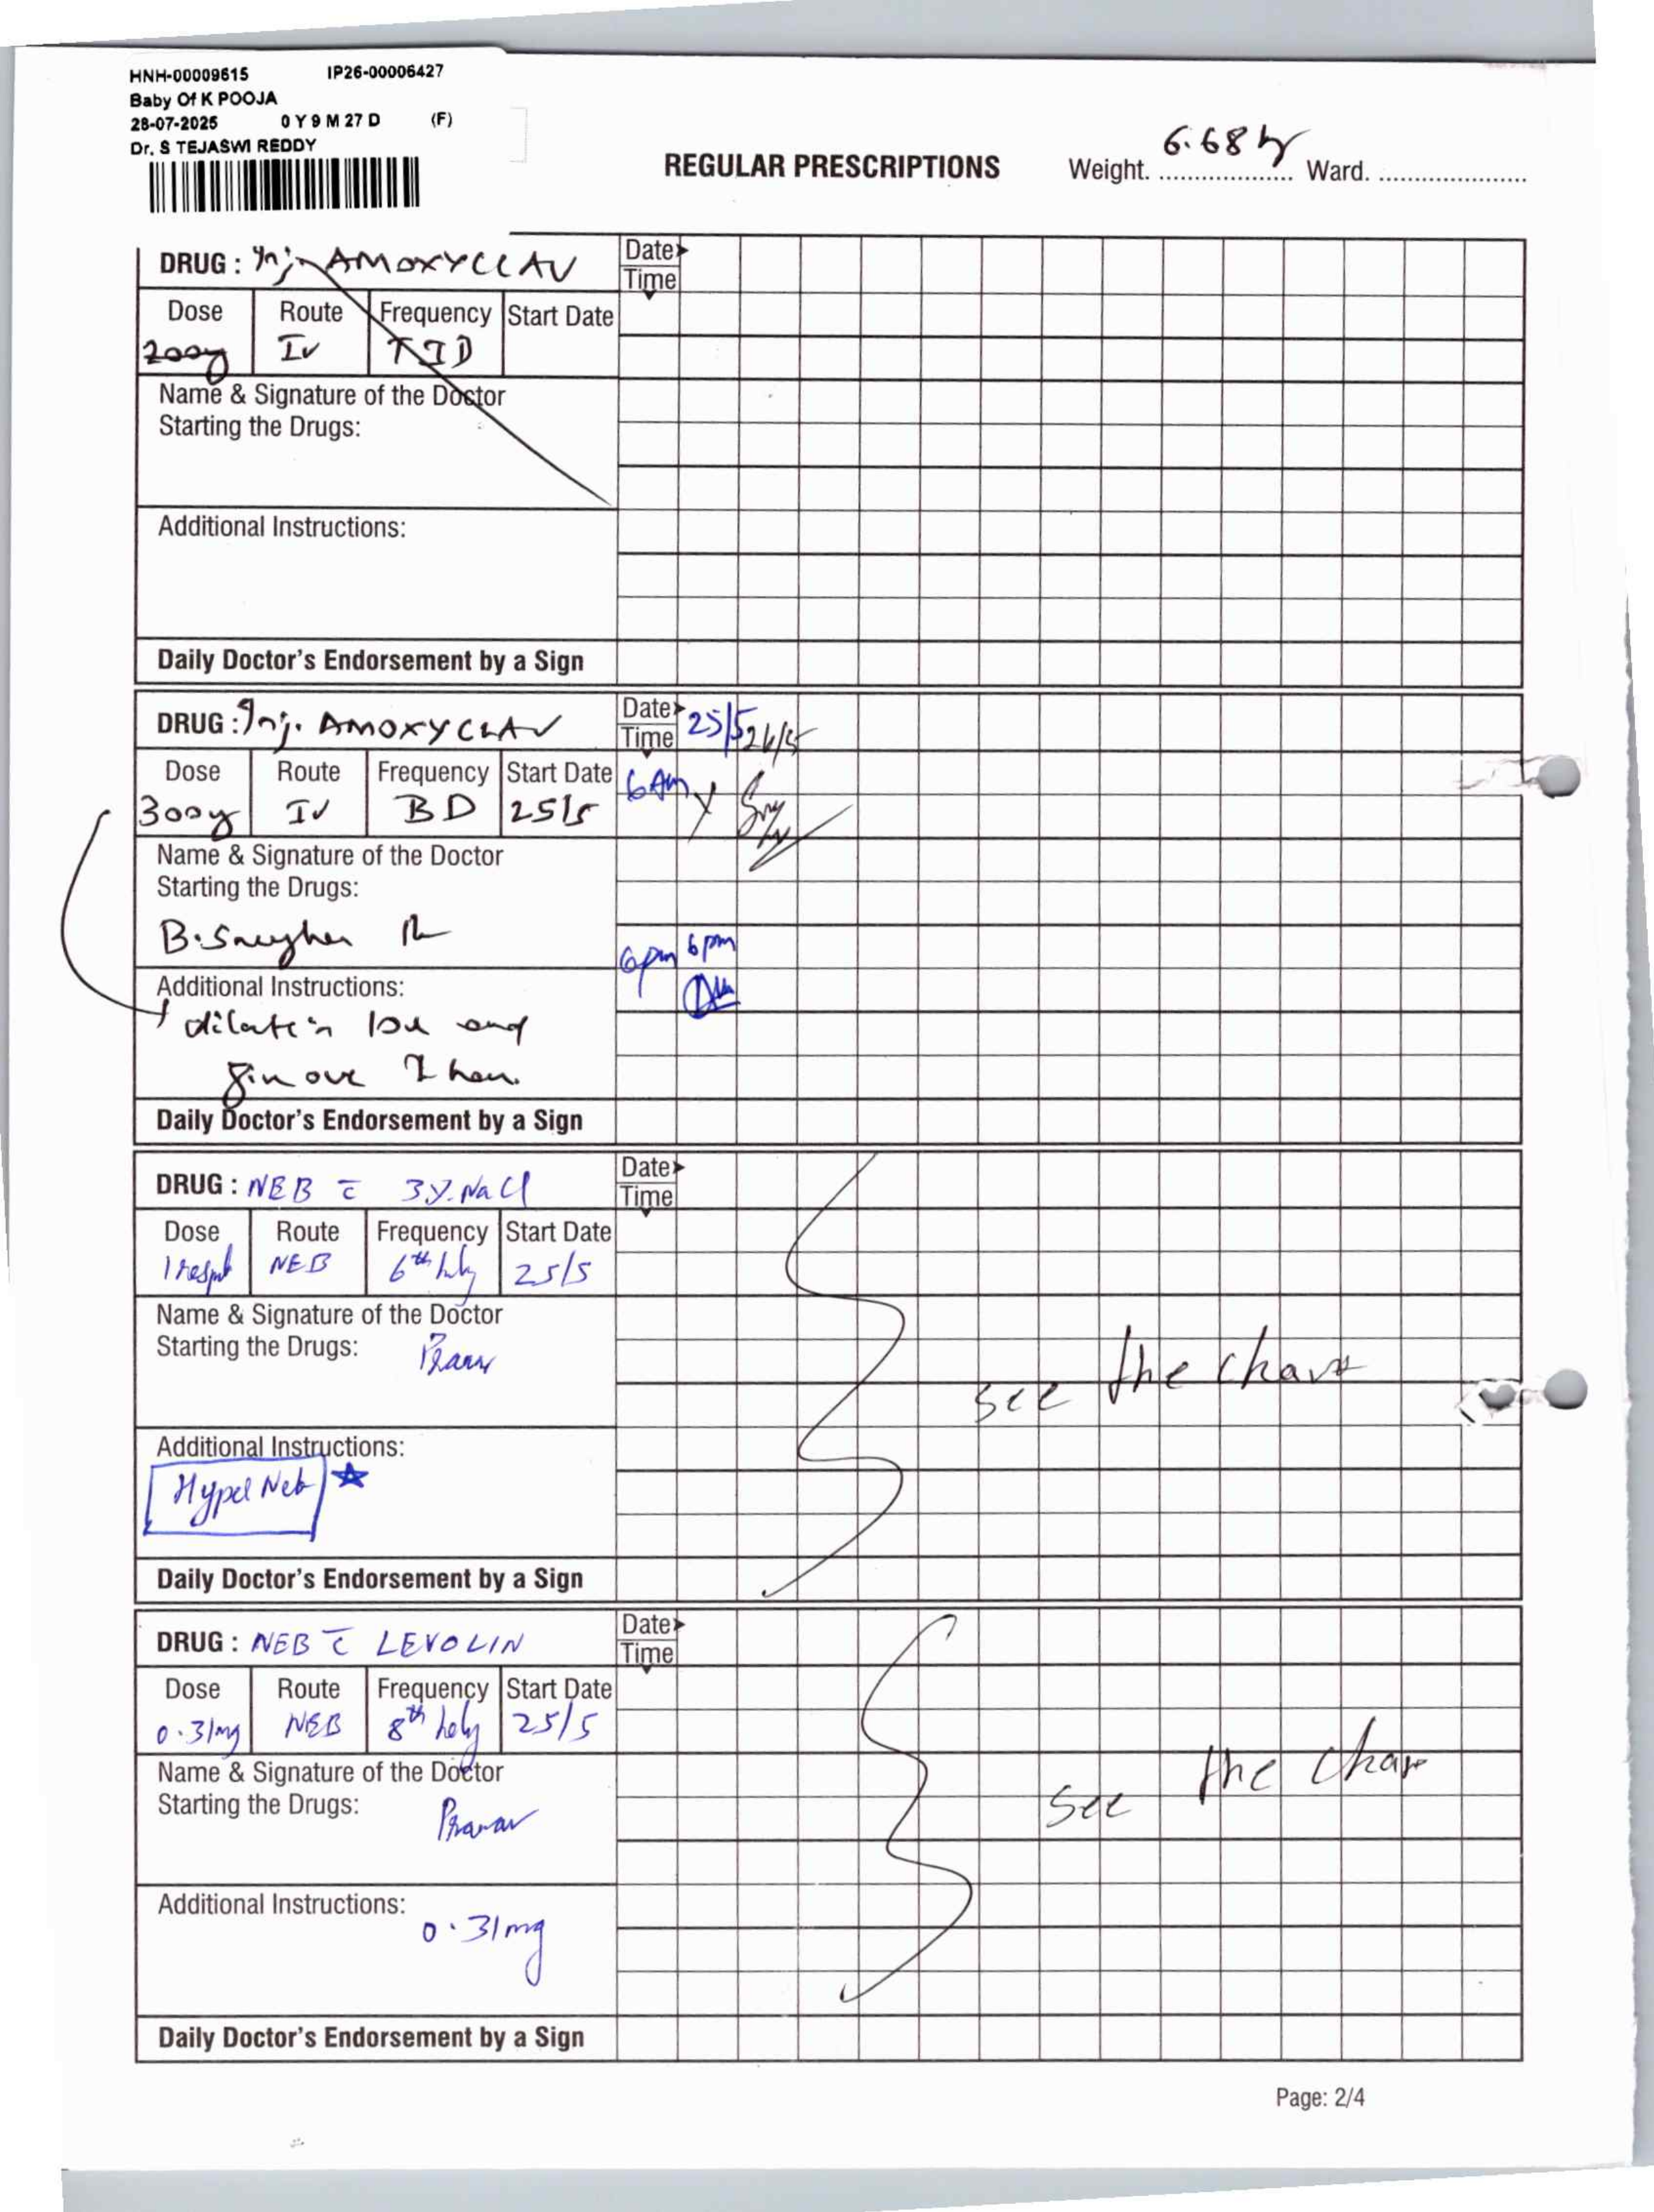 HNH-00009615 IP26-00006427
Baby Of K POOJA
28-07-2025 0 Y 9 M 27 D (F)
Dr. S TEJASWI REDDY
REGULAR PRESCRIPTIONS Weight. 6.68 Ward.
DRUG : Inj. AMOXYCLAV Date
Time
Dose Route Frequency Start Date
IV TID
Name & Signature of the Doctor
Starting the Drugs:
Additional Instructions:
Daily Doctor's Endorsement by a Sign
DRUG : Inj. AMOXYCLAV Date 25/5 26/5
Time
Dose Route Frequency Start Date 6 Am
IV BD 25/5
Name & Signature of the Doctor
Starting the Drugs:
6pm 6pm
Additional Instructions:
dilute in and
over
Daily Doctor's Endorsement by a Sign
DRUG : NEB c̄ 3% NaCl Date
Time
Dose Route Frequency Start Date
NEB 6th hly 25/5
Name & Signature of the Doctor
Starting the Drugs: Pranav
see the chart
Additional Instructions:
Hyper Neb
Daily Doctor's Endorsement by a Sign
DRUG : NEB c̄ LEVOLIN Date
Time
Dose Route Frequency Start Date
0.31mg NEB 8th hly 25/5
Name & Signature of the Doctor
Starting the Drugs: Pranav
see the char
Additional Instructions:
0.31mg
Daily Doctor's Endorsement by a Sign
Page: 2/4